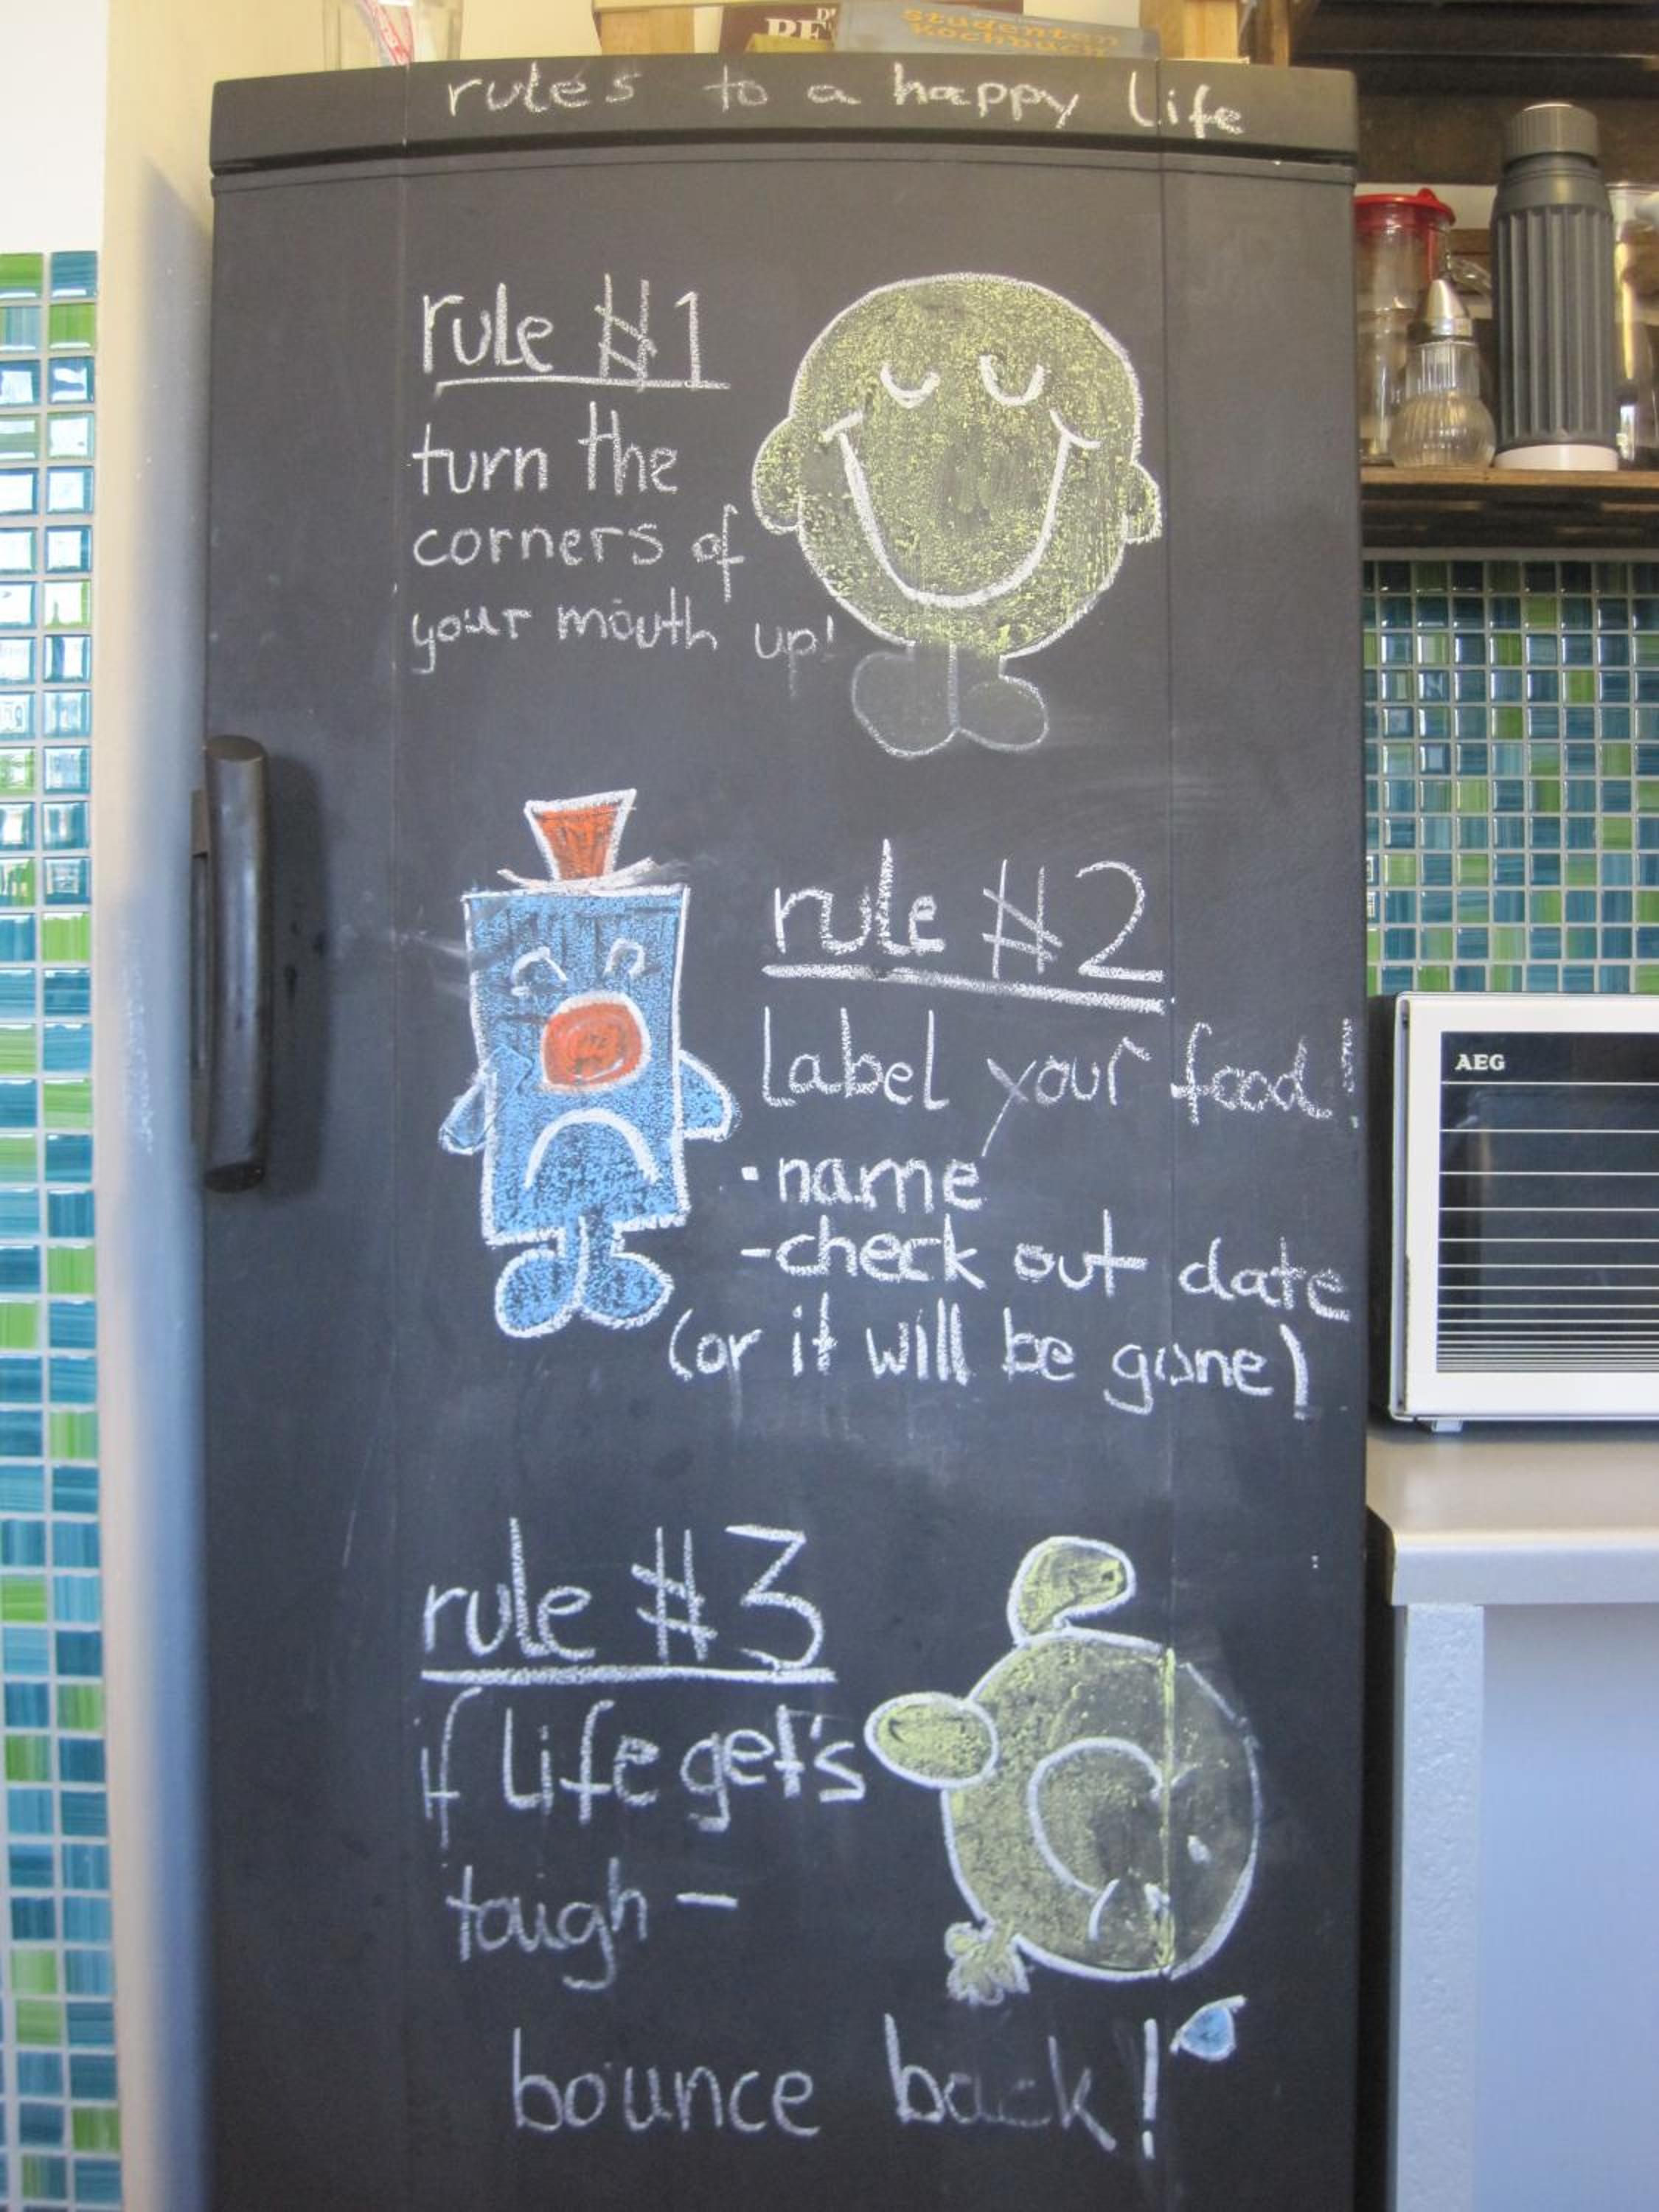 studenten
kochbuch
rules to a happy life
rule #1
turn the
corners of
your mouth up!
rule #2
label your food!
· name
- check out date
(or it will be gone)
AEG
rule #3
if life get's
tough -
bounce back!